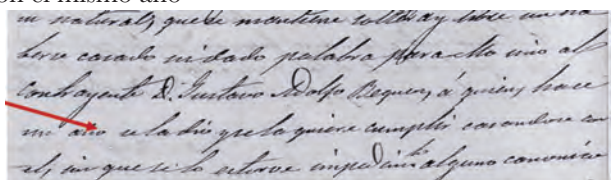 en el mismo año
natural, que se mantiene soltera y libre sin ha
berse casado ni dado palabra para ello sino al
contrayente D. Gustavo Adolfo Becquer, á quien hace
un año se la dió y se la quiere cumplir casandose con
el, sin que se lo estorve impedimto alguno canonico